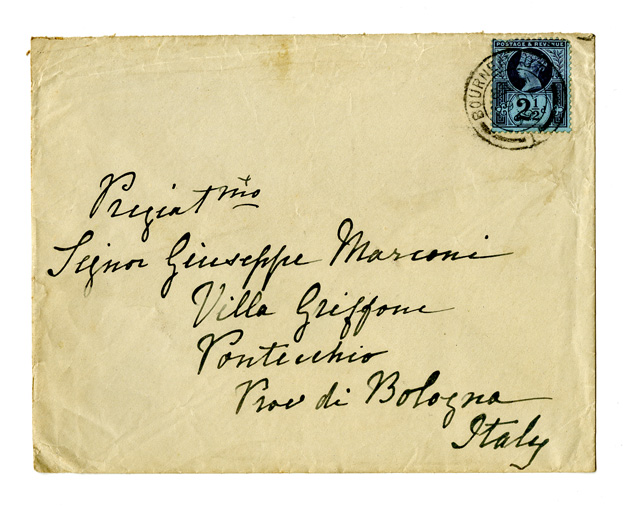 POSTAGE & REVENUE
BOURNE
2½
Pregiatmo
Signor Giuseppe Marconi
Villa Griffone
Pontecchio
Prov di Bologna
Italy